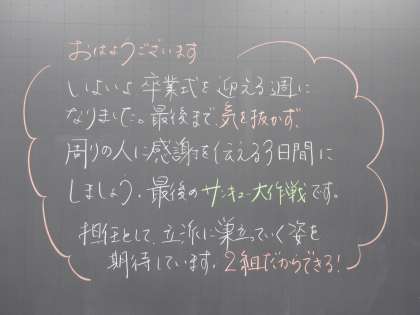 おはようございます
いよいよ卒業式を迎える週に
なりました。最後まで気を抜かず、
周りの人に感謝を伝える3日間に
しましょう。最後のサンキュー大作戦です。
担任として、立派に巣立っていく姿を
期待しています。2組だからできる!